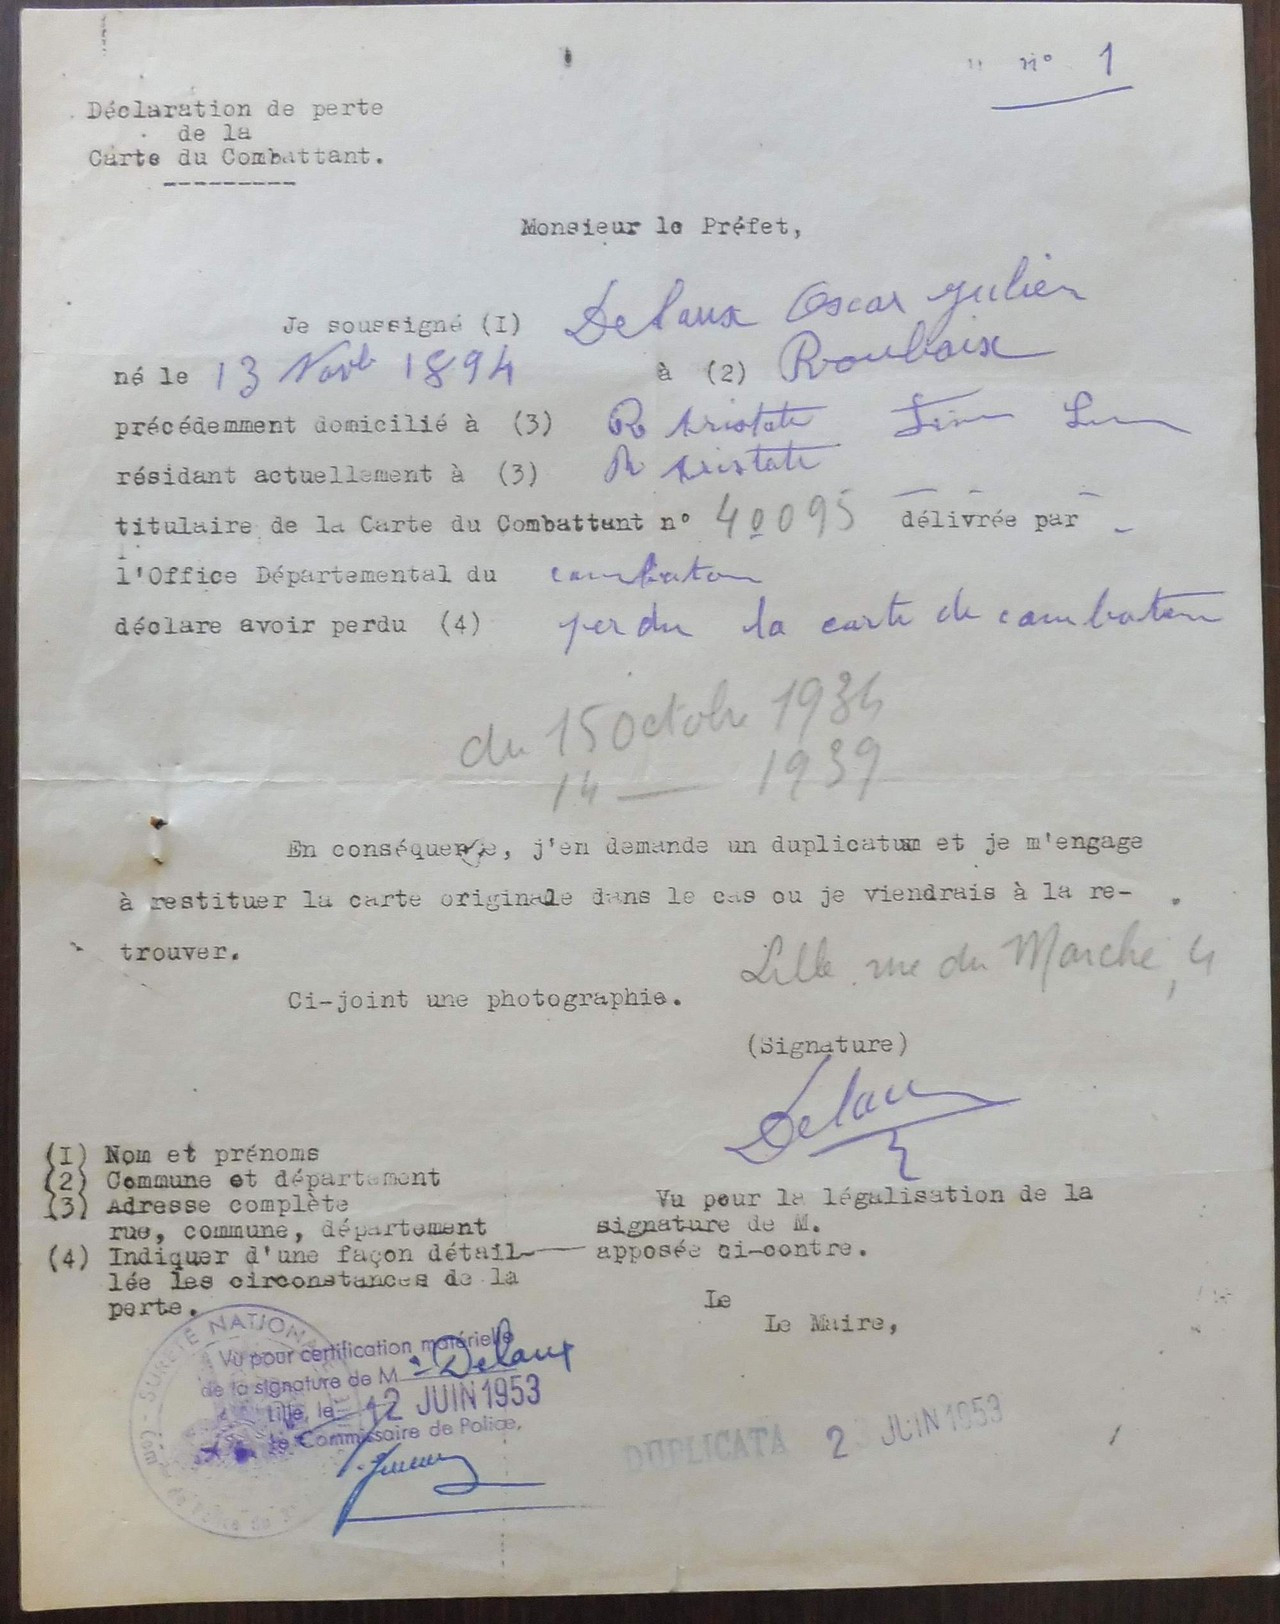 n° 1
Déclaration de perte
de la
Carte du Combattant.
Monsieur le Préfet,
Je soussigné (I) Delaux Oscar Julien
né le 13 Novb 1894 à (2) Roubaix
précédemment domicilié à (3) R Aristate
résidant actuellement à (3) R Aristate
titulaire de la Carte du Combattant n° 40095 délivrée par
l'Office Départemental du combatan
déclare avoir perdu (4) perdu la carte de combatan
du 15 octobre 1934
14 — 1939
En conséquence, j'en demande un duplicatum et je m'engage
à restituer la carte originale dans le cas ou je viendrais à la re-
trouver.
Lille rue du Marche, 4
Ci-joint une photographie.
(Signature)
Delaux
(I) Nom et prénoms
(2) Commune et département
(3) Adresse complète
rue, commune, département
(4) Indiquer d'une façon détail-
lée les circonstances de la
perte.
Vu pour la légalisation de la
signature de M.
apposée ci-contre.
Le
Le Maire,
SURETÉ NATIONALE
Vu pour certification matérielle
de la signature de M. Delaux
Lille, le 12 JUIN 1953
Le Commissaire de Police,
DUPLICATA 2 JUIN 1953